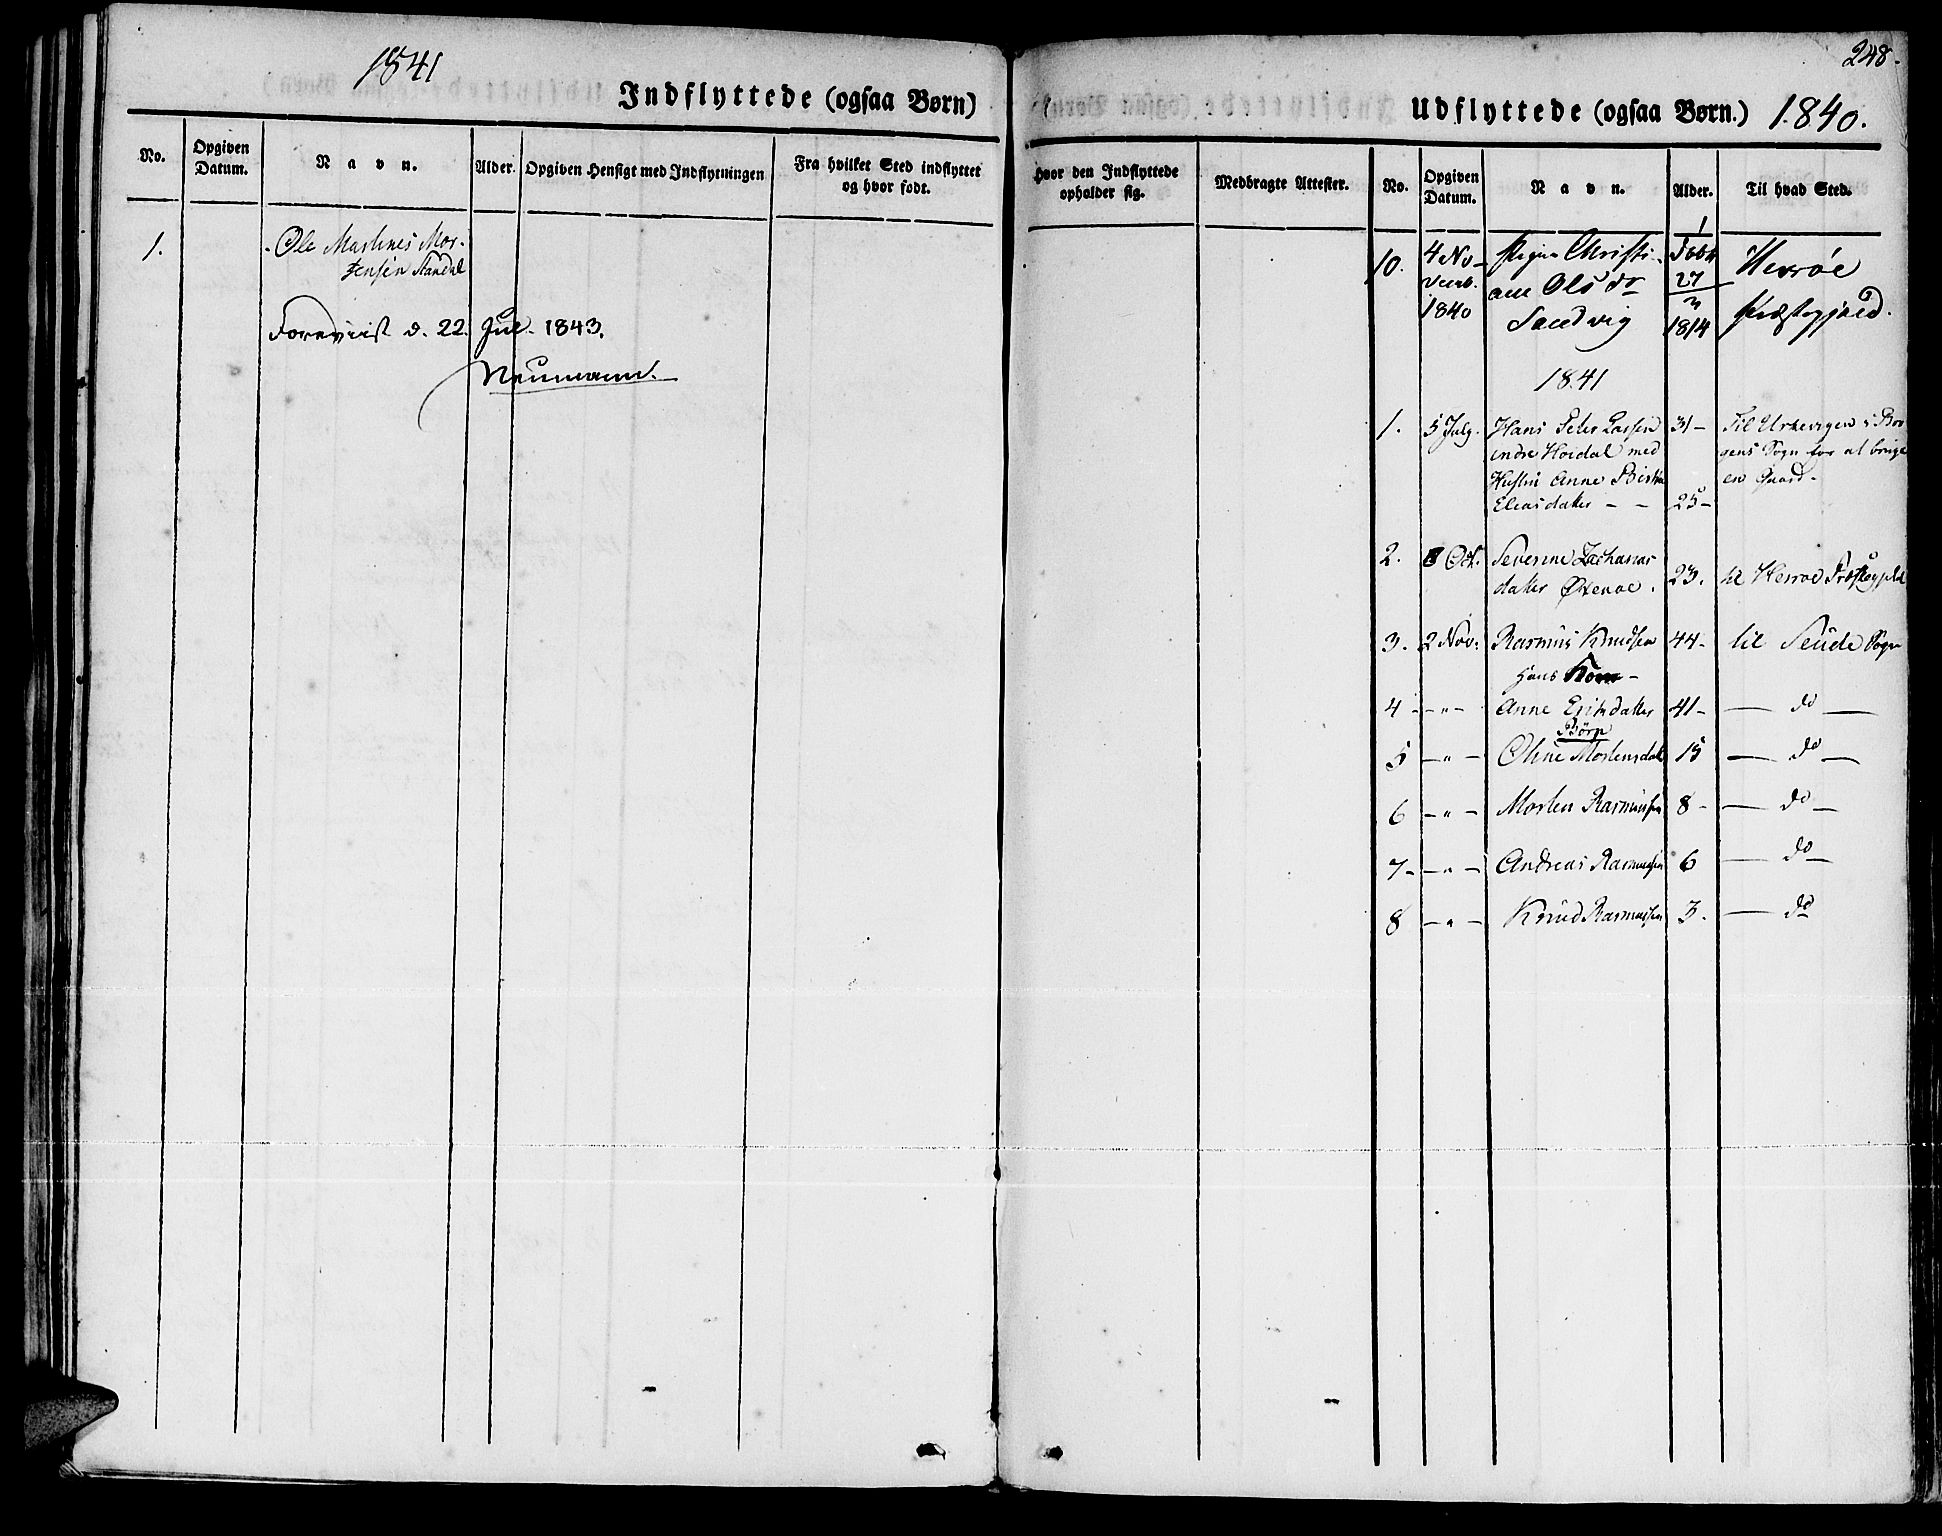 1841
Indflyttede (ogsaa Børn)
No.
Opgiven Datum.
Navn.
Alder.
Opgiven Hensigt med Indflytningen
Fra hvilket Sted indflyttet og hvor født.
1.
Ole Martines Mor-
tensen Standal
Foreviist d. 22. Jul. 1843.
Neumann.
248.
Udflyttede (ogsaa Børn.) 1840.
Hvor den Indflyttede opholder sig.
Medbragte Attester.
No.
Opgiven Datum.
Navn.
Alder.
Til hvad Sted.
10. 4 No- Pigen Christi- Født Herröe
vemb. ane Olsdr 27/3 Præstegjæld.
1840 Sandvig 1814
1841
1. 5 July. Hans Peter Larsen 31- Til Urkevigen i Bor
indre Høidal med gens Sogn for at bruge
Hustru Anne Birthe en Gaard.
Eliasdatter - - 25-
2. Oct. Severine Zacharias
datter Øxenoe. 23. til Herroe Præstegjeld
3. 2 Nov. Rasmus Knudsen 44- til Seude Sogn
hans Kone-
4 - - " - Anne Eriksdatter 41- - do -
Børn
5 - " - Oline Mortensdat 15 - do -
6 - " - Morten Rasmussen 8- - do -
7- - " - Andreas Rasmussen 6 - do -
8 - " - Knud Rasmussen 3. - do